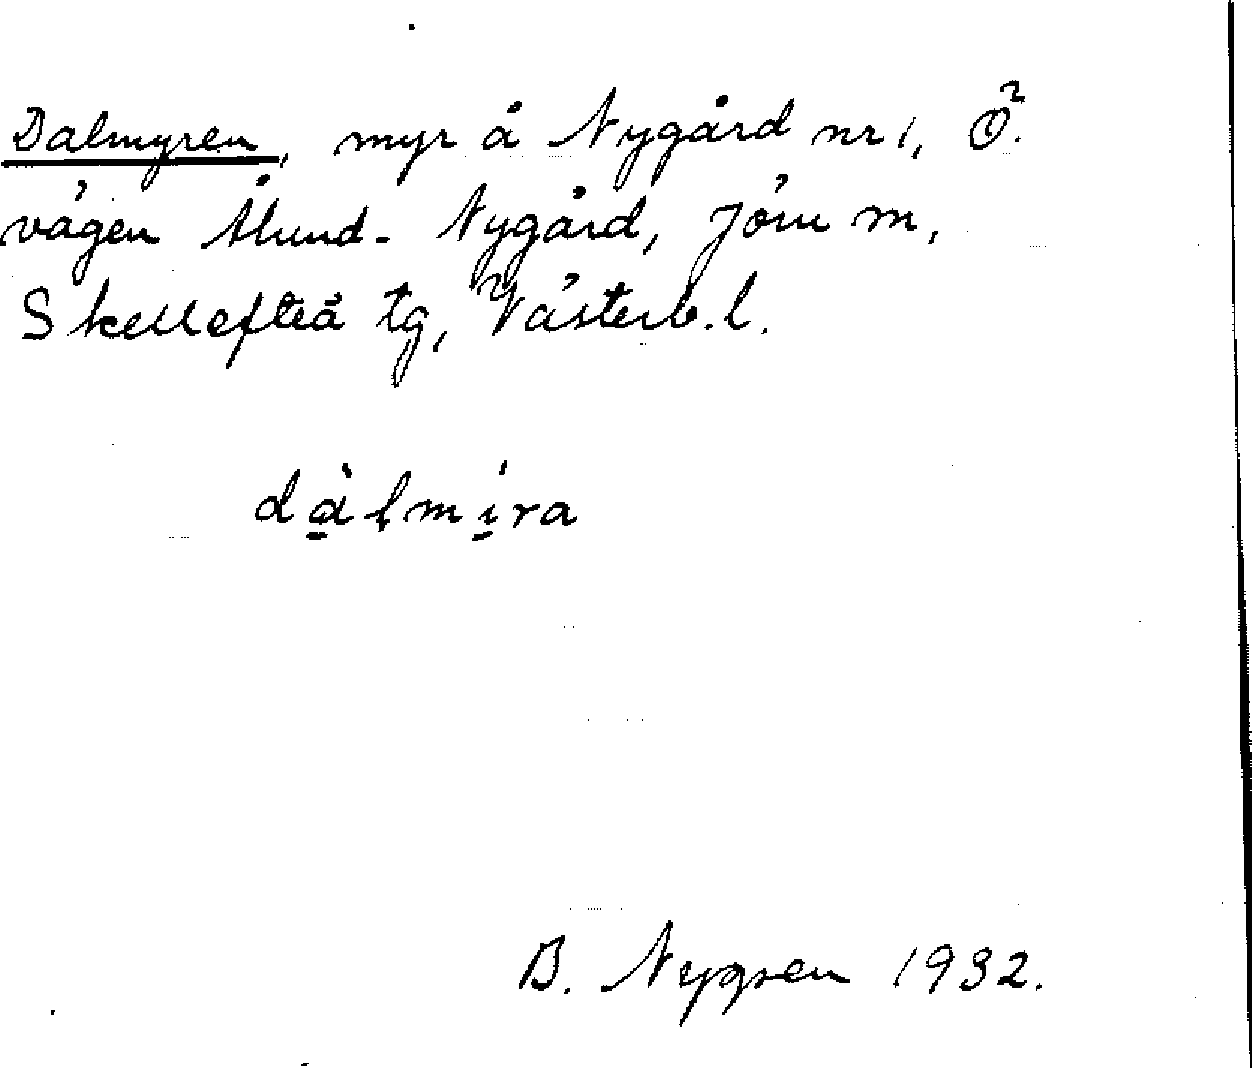 Dalmyren, myr å Nygård nr 1, Ö.
vägen Ålund - Nygård, Jörn m,
Skellefteå tg, Västerb. l.
dà̱lmí̱ra
B. Nygren 1932.